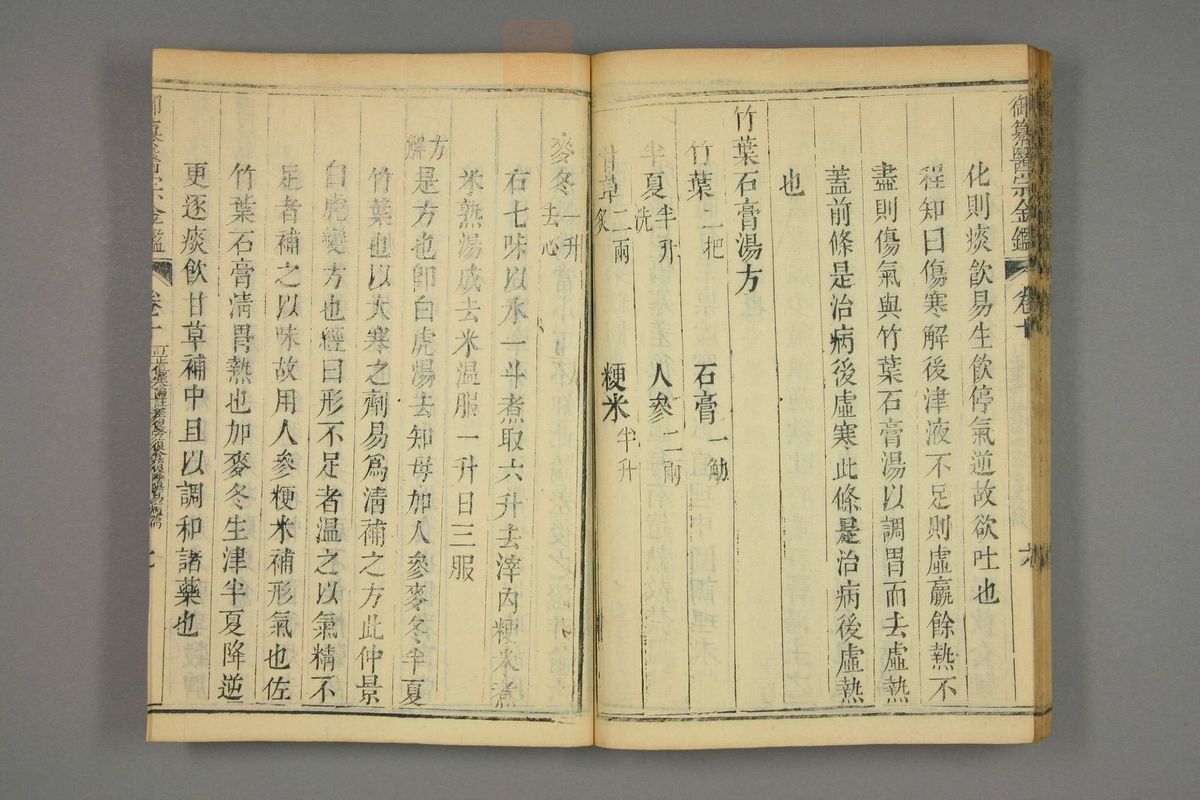 御纂醫宗金鑑 卷十 六
化則痰飲易生飲停氣逆故欲吐也
程知曰傷寒解後津液不足則虛羸餘熱不
盡則傷氣與竹葉石膏湯以調胃而去虛熱
蓋前條是治病後虛寒此條是治病後虛熱
也
竹葉石膏湯方
竹葉二把 石膏一觔
半夏半升洗 人參二兩
甘草二兩炙 粳米半升
麥冬一升去心
右七味以水一斗煮取六升去滓內粳米煮
米熟湯成去米温服一升日三服
方解
是方也卽白虎湯去知母加人參麥冬半夏
竹葉也以大寒之劑易爲清補之方此仲景
白虎變方也經曰形不足者温之以氣精不
足者補之以味故用人參粳米補形氣也佐
竹葉石膏清胃熱也加麥冬生津半夏降逆
更逐痰飲甘草補中且以調和諸藥也
御纂醫宗金鑑 卷十